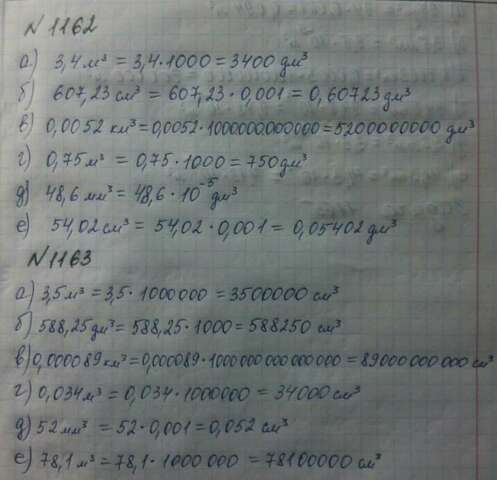 N 1162
а) 3,4 м³ = 3,4 · 1000 = 3400 дм³
б) 607,23 см³ = 607,23 · 0,001 = 0,60723 дм³
в) 0,0052 км³ = 0,0052 · 1000000000000 = 5200000000 дм³
г) 0,75 м³ = 0,75 · 1000 = 750 дм³
д) 48,6 мм³ = 48,6 · 10⁻⁵ дм³
е) 54,02 см³ = 54,02 · 0,001 = 0,05402 дм³
N 1163
а) 3,5 м³ = 3,5 · 1000000 = 3500000 см³
б) 588,25 дм³ = 588,25 · 1000 = 588250 см³
в) 0,000089 км³ = 0,000089 · 1000000000000000 = 89000000000 см³
г) 0,034 м³ = 0,034 · 1000000 = 34000 см³
д) 52 мм³ = 52 · 0,001 = 0,052 см³
е) 78,1 м³ = 78,1 · 1000000 = 78100000 см³